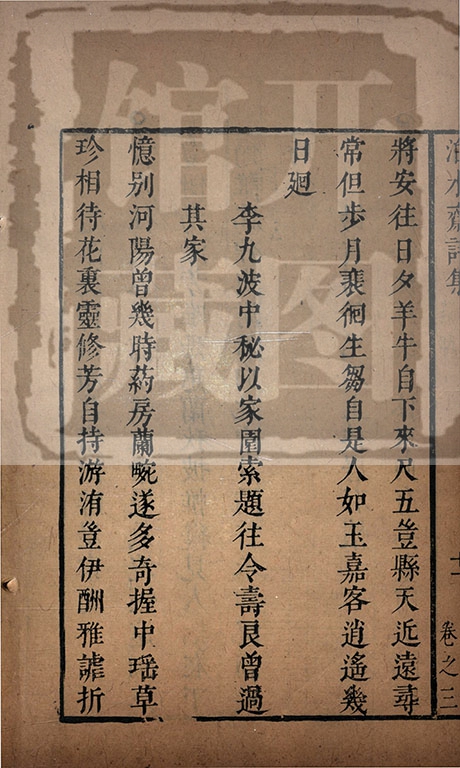 將安往日夕羊牛自下來尺五豈縣天近遠尋
常但步月裵徊生芻自是人如玉嘉客逍遙幾
日廻
李九波中秘以家園索題往令壽良曾過
其家
憶别河陽曾幾時葯房蘭畹遂多奇握中瑶草
珍相待花裏靈修芳自持游洧豈伊酬雅謔折
卷之三